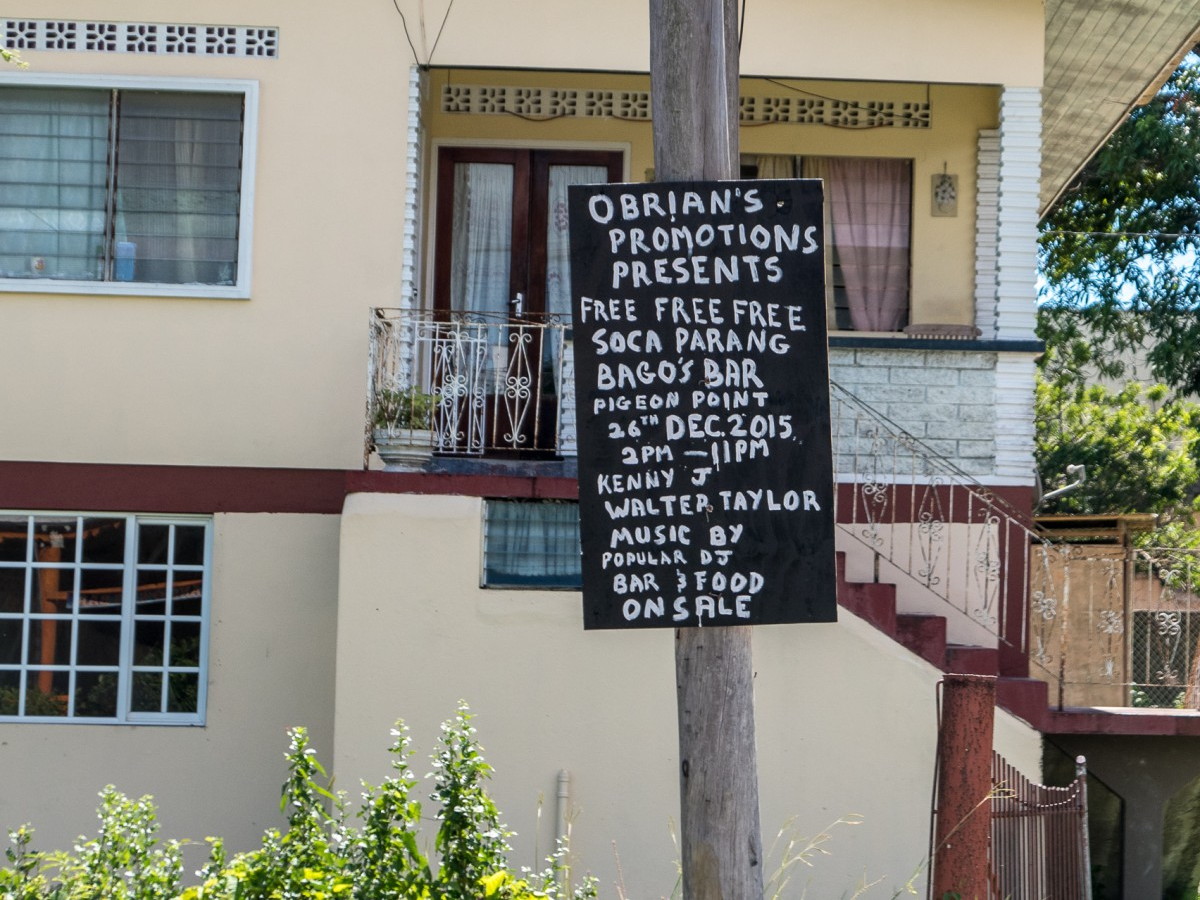 OBRIAN'S
PROMOTIONS
PRESENTS
FREE FREE FREE
SOCA PARANG
BAGO'S BAR
PIGEON POINT
26TH DEC. 2015
2PM - 11PM
KENNY J
WALTER TAYLOR
MUSIC BY
POPULAR DJ
BAR & FOOD
ON SALE